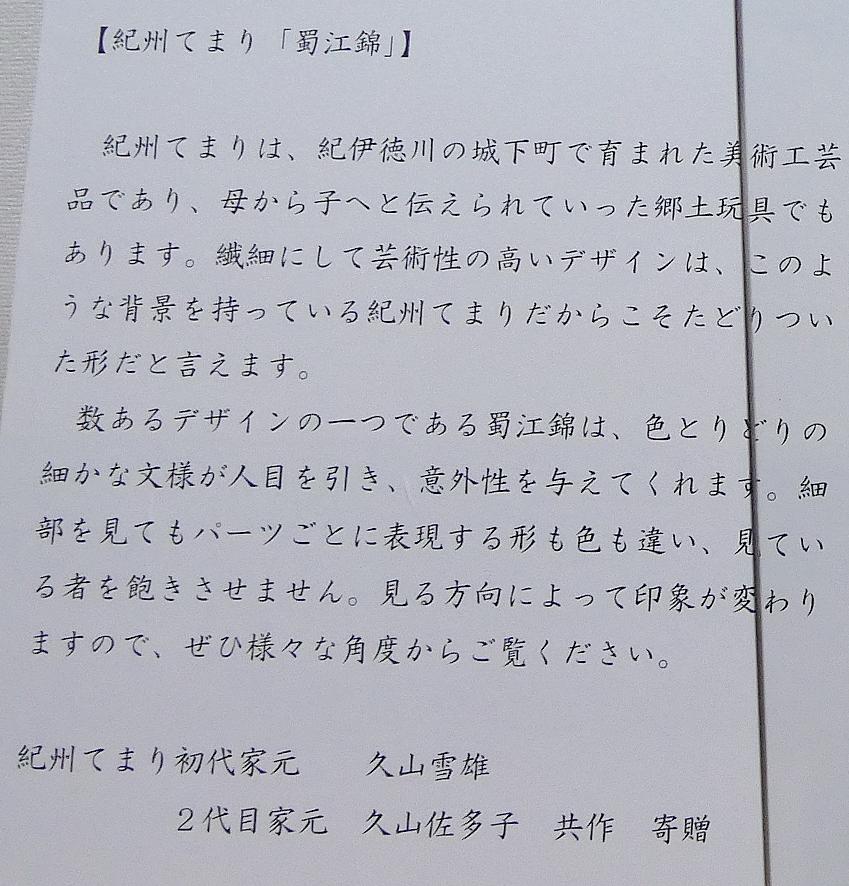 【紀州てまり「蜀江錦」】
紀州てまりは、紀伊徳川の城下町で育まれた美術工芸
品であり、母から子へと伝えられていった郷土玩具でも
あります。繊細にして芸術性の高いデザインは、このよ
うな背景を持っている紀州てまりだからこそたどりつい
た形だと言えます。
数あるデザインの一つである蜀江錦は、色とりどりの
細かな文様が人目を引き、意外性を与えてくれます。細
部を見てもパーツごとに表現する形も色も違い、見てい
る者を飽きさせません。見る方向によって印象が変わり
ますので、ぜひ様々な角度からご覧ください。
紀州てまり初代家元　　久山雪雄
２代目家元　久山佐多子　共作　寄贈